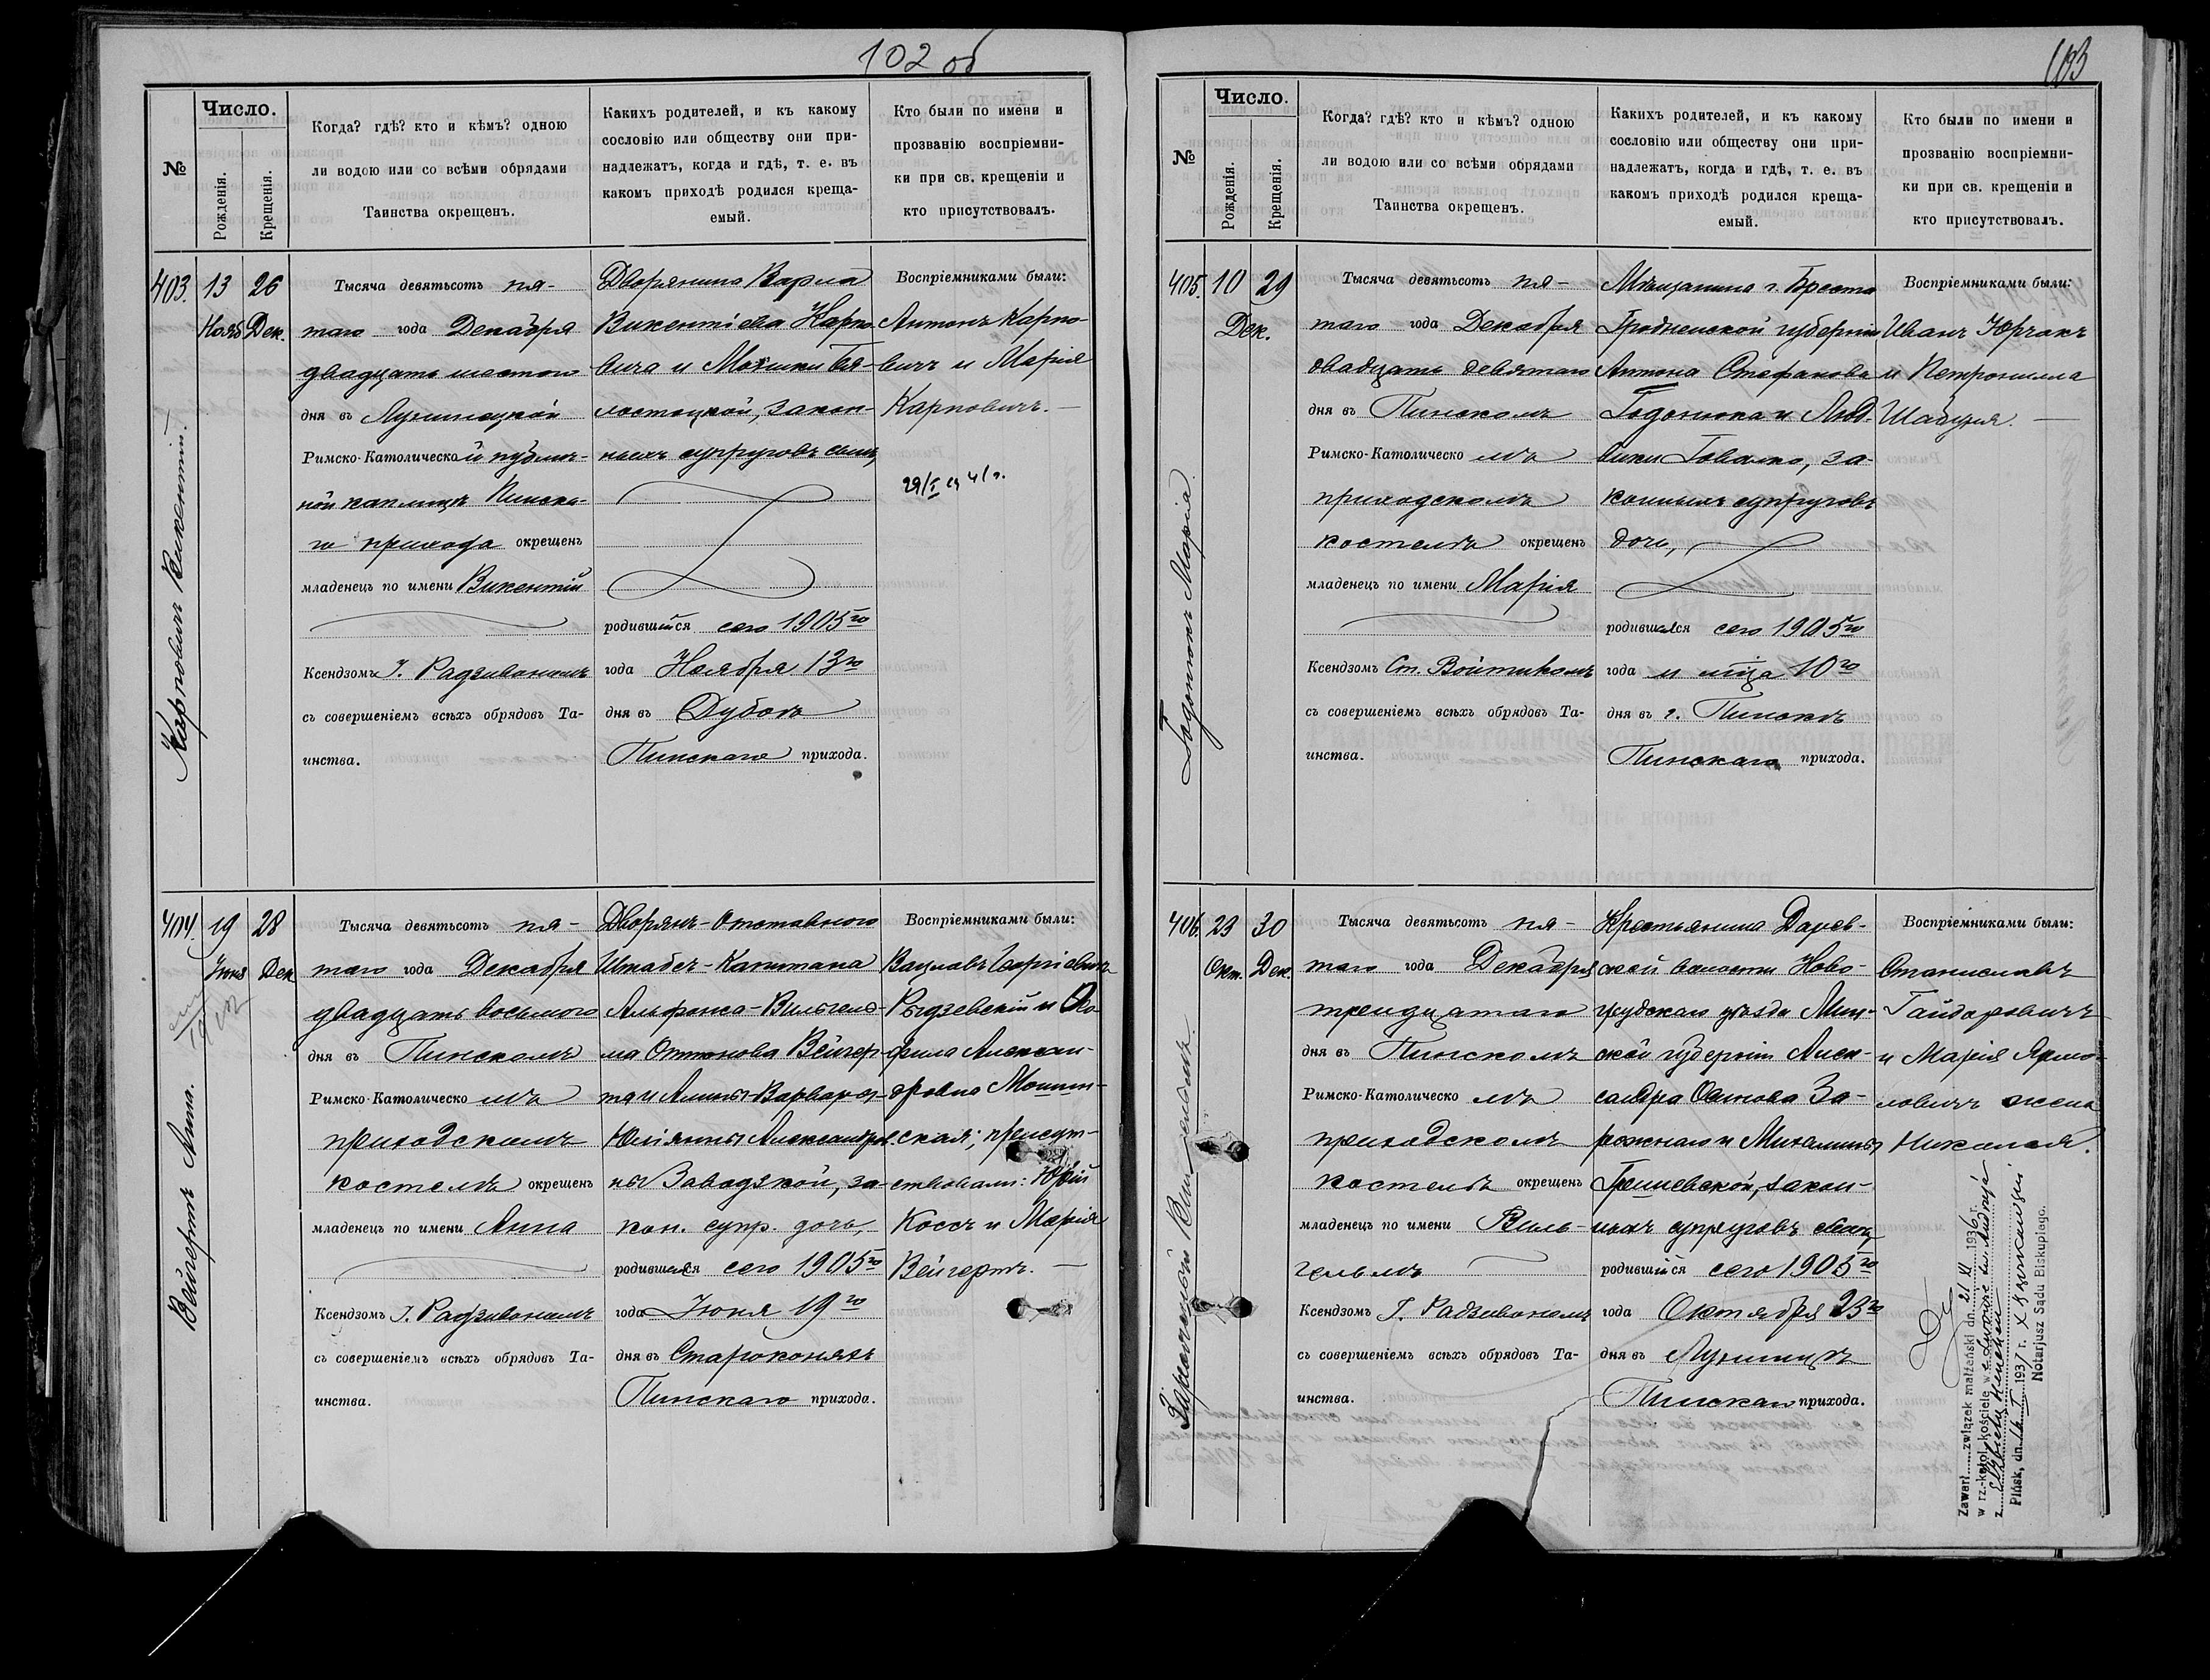 102 об
№
Число.
Рожденія.
Крещенія.
Когда? гдѣ? кто и кѣмъ? одною
ли водою или со всѣми обрядами
Таинства окрещенъ.
Какихъ родителей, и къ какому
сословію или обществу они при-
надлежатъ, когда и гдѣ, т. е. въ
какомъ приходѣ родился креща-
емый.
Кто были по имени и
прозванію воспріемни-
ки при св. крещеніи и
кто присутствовалъ.
403. 13 26
Нояб Дек.
Карповичъ Викентій.
Тысяча девятьсотъ пя-
таго года Декабря
двадцать шестого
дня въ Лунинецкой
Римско-Католической публич-
ной каплицѣ Пинска-
го прихода окрещенъ
младенецъ по имени Викентій
Ксендзомъ І. Радзивономъ
съ совершеніемъ всѣхъ обрядовъ Та-
инства.
Дворянина Карла
Викентіева Карпо
вича и
законн-
ныхъ супруговъ сынъ,
родившійся сего 1905го
года Ноября 13го
дня въ Дубовѣ
Пинскаго прихода.
Воспріемниками были:
Антонъ Карпо-
вичъ и Марія
Карповичъ.
404. 19 28
Іюня Дек
Вейгертъ Анна.
Тысяча девятьсотъ пя-
таго года Декабря
двадцать восьмого
дня въ Пинскомъ
Римско-Католическомъ
приходскомъ
костелѣ окрещенъ
младенецъ по имени Анна
Ксендзомъ І. Радзивономъ
съ совершеніемъ всѣхъ обрядовъ Та-
инства.
Дворянъ-Отставного
Штабсъ-Капитана
Альфонса-Вильгель-
ма Оттонова Вейгер-
та и Анны-Варвары-
Юліянны Александров-
ны Завадзкой, за-
кон. супр. дочь,
родившаяся сего 1905го
года Іюня 19го
дня въ Староконяхъ
Пинскаго прихода.
Воспріемниками были:
Вацлавъ Георгіевичъ
Рыдзевскій и
Алексан-
дровна
ская; присут-
ствовали: Юрій
Коссъ и Марія
Вейгертъ.
103
№
Число.
Рожденія.
Крещенія.
Когда? гдѣ? кто и кѣмъ? одною
ли водою или со всѣми обрядами
Таинства окрещенъ.
Какихъ родителей, и къ какому
сословію или обществу они при-
надлежатъ, когда и гдѣ, т. е. въ
какомъ приходѣ родился креща-
емый.
Кто были по имени и
прозванію воспріемни-
ки при св. крещеніи и
кто присутствовалъ.
405. 10 29
Дек.
Годонюкъ Марія
Тысяча девятьсотъ пя-
таго года Декабря
двадцать девятаго
дня въ Пинскомъ
Римско-Католическомъ
приходскомъ
костелѣ окрещенъ
младенецъ по имени Марія
Ксендзомъ Ст. Войтикомъ
съ совершеніемъ всѣхъ обрядовъ Та-
инства.
Мѣщанина г. Бреста
Гродненской губерніи
Антона Стефанова
Годонюка и Люд-
вики за-
конныхъ супруговъ
дочь,
родившаяся сего 1905го
года и мѣсяца 10го
дня въ г. Пинскѣ
Пинскаго прихода.
Воспріемниками были:
Иванъ Юрчакъ
и Петронилла
406. 23 30
Окт. Дек.
Тысяча девятьсотъ пя-
таго года Декабря
тридцатаго
дня въ Пинскомъ
Римско-Католическомъ
приходскомъ
костелѣ окрещенъ
младенецъ по имени Виль-
гельмъ
Ксендзомъ І. Радзивономъ
съ совершеніемъ всѣхъ обрядовъ Та-
инства.
Крестьянина Дарев-
ской волости Ново-
грудскаго уѣзда Мин-
ской губерніи Алек-
сандра
и Михалины
закон-
ныхъ супруговъ сынъ,
родившійся сего 1905го
года Октября 23го
дня въ Лунинцѣ
Пинскаго прихода.
Воспріемниками были:
Станиславъ
Гайдаровичъ
и Марія Ярмо-
ловичъ жена
Николая.
Zawarł związek małżeński dn. 21 XI 1936 r.
w rz.-katol. kościele w
z
Pińsk, dn. 1937 r.
Notarjusz Sądu Biskupiego.